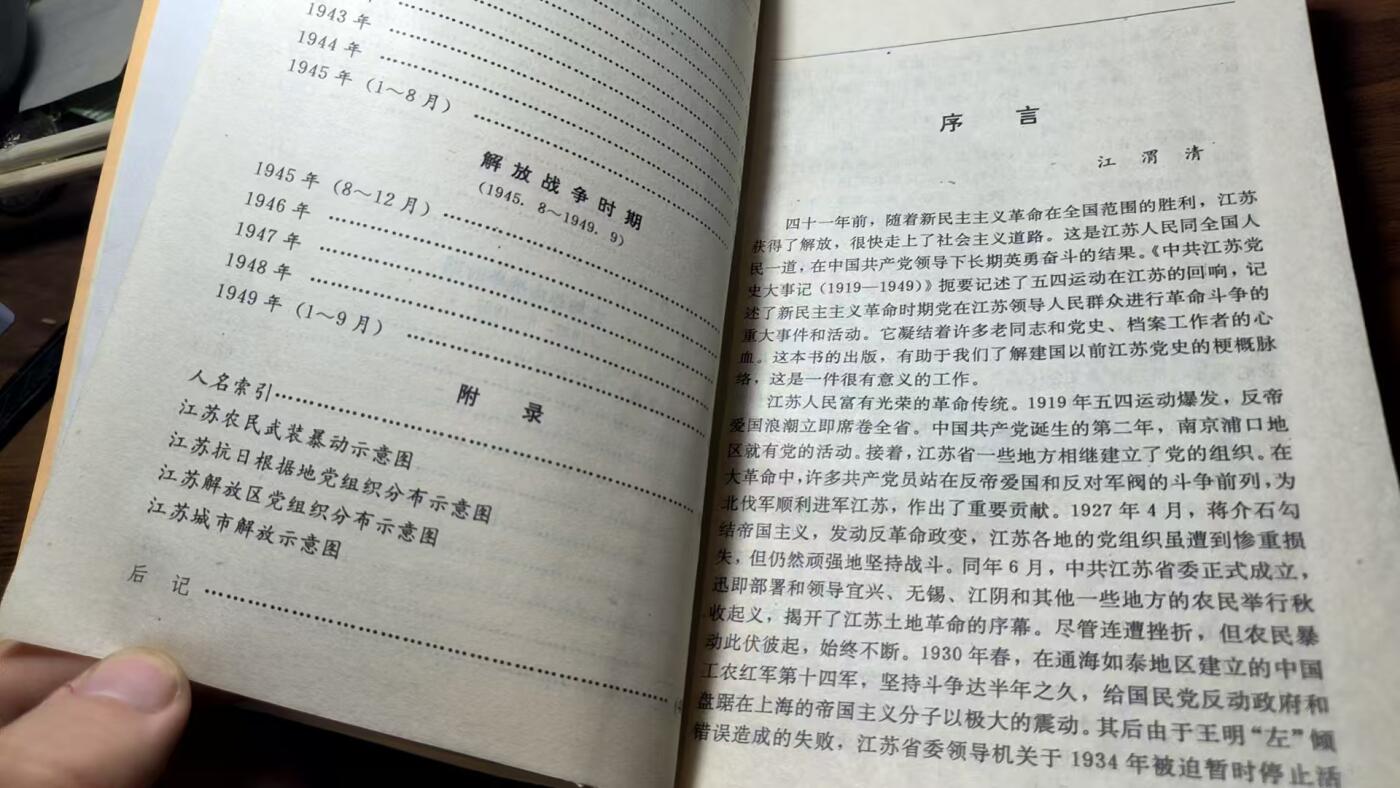 1943年
1944年
1945年（1～8月）
解放战争时期
（1945．8～1949．9）
1945年（8～12月）
1946年
1947年
1948年
1949年（1～9月）
附录
人名索引
江苏农民武装暴动示意图
江苏抗日根据地党组织分布示意图
江苏解放区党组织分布示意图
江苏城市解放示意图
后记
序言
江渭清
四十一年前，随着新民主主义革命在全国范围的胜利，江苏
获得了解放，很快走上了社会主义道路。这是江苏人民同全国人
民一道，在中国共产党领导下长期英勇奋斗的结果。《中共江苏党
史大事记（1919—1949）》扼要记述了五四运动在江苏的回响，记
述了新民主主义革命时期党在江苏领导人民群众进行革命斗争的
重大事件和活动。它凝结着许多老同志和党史、档案工作者的心
血。这本书的出版，有助于我们了解建国以前江苏党史的梗概脉
络，这是一件很有意义的工作。
江苏人民富有光荣的革命传统。1919年五四运动爆发，反帝
爱国浪潮立即席卷全省。中国共产党诞生的第二年，南京浦口地
区就有党的活动。接着，江苏省一些地方相继建立了党的组织。在
大革命中，许多共产党员站在反帝爱国和反对军阀的斗争前列，为
北伐军顺利进军江苏，作出了重要贡献。1927年4月，蒋介石勾
结帝国主义，发动反革命政变，江苏各地的党组织虽遭到惨重损
失，但仍然顽强地坚持战斗。同年6月，中共江苏省委正式成立，
迅即部署和领导宜兴、无锡、江阴和其他一些地方的农民举行秋
收起义，揭开了江苏土地革命的序幕。尽管连遭挫折，但农民暴
动此伏彼起，始终不断。1930年春，在通海如泰地区建立的中国
工农红军第十四军，坚持斗争达半年之久，给国民党反动政府和
盘踞在上海的帝国主义分子以极大的震动。其后由于王明“左”倾
错误造成的失败，江苏省委领导机关于1934年被迫暂时停止活